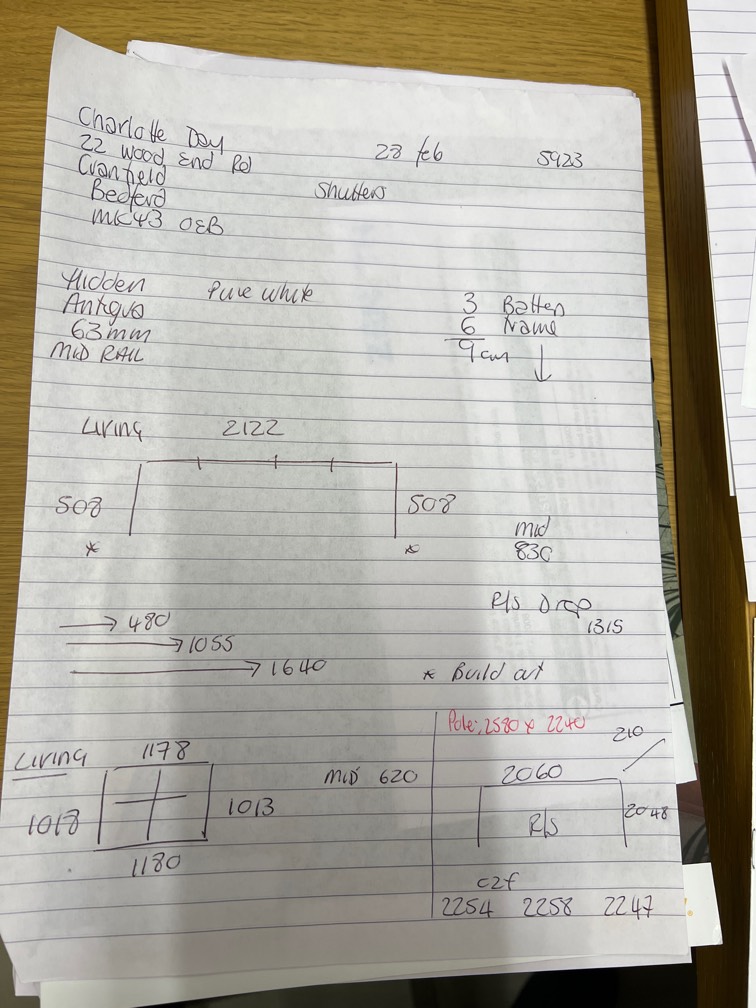 Charlotte Day
22 Wood End Rd 28 feb 5923
Cranfield
Bedford Shutters
MK43 0EB
Hidden Pure White
Antigua
63mm
MID RAIL
3 Batten
6 Frame
9cm
Living 2122
508 508
* *
Mid
830
R/S Drop
1315
→ 480
→ 1055
→ 1640
* Build out
Living 1178
1018 1013
1180
MID 620
Pole: 2580 x 2240
210
2060
R/S 2048
C2f
2254 2258 2247